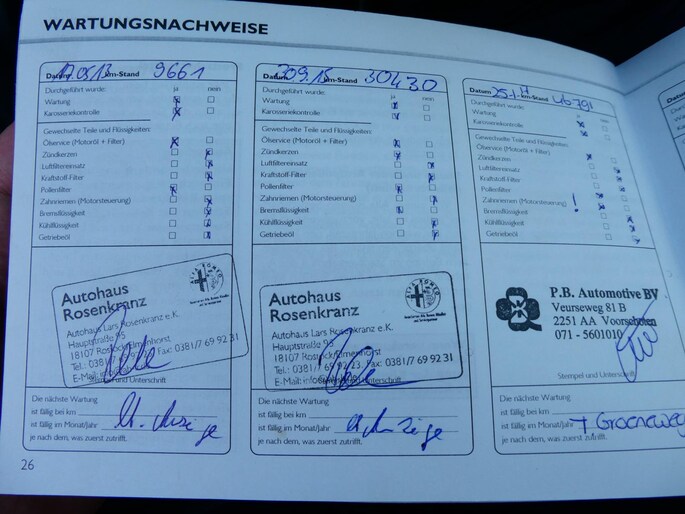 WARTUNGSNACHWEISE
Datum 17.05.13 km-Stand 9661
Durchgeführt wurde: ja nein
Wartung
Karosseriekontrolle
Gewechselte Teile und Flüssigkeiten:
Ölservice (Motoröl + Filter)
Zündkerzen
Luftfiltereinsatz
Kraftstoff-Filter
Pollenfilter
Zahnriemen (Motorsteuerung)
Bremsflüssigkeit
Kühlflüssigkeit
Getriebeöl
Autohaus
Rosenkranz
ALFA ROMEO
Autohaus Lars Rosenkranz e.K.
Hauptstraße 95
18107 Rostock/Elmenhorst
Tel.: 0381/7 69 92 Fax: 0381/7 69 92 31
E-Mail:
Stempel und Unterschrift
Die nächste Wartung
ist fällig bei km
ist fällig im Monat/Jahr lt. Anzeige
je nach dem, was zuerst zutrifft.
26
Datum 309.15 km-Stand 30430
Durchgeführt wurde: ja nein
Wartung
Karosseriekontrolle
Gewechselte Teile und Flüssigkeiten:
Ölservice (Motoröl + Filter)
Zündkerzen
Luftfiltereinsatz
Kraftstoff-Filter
Pollenfilter
Zahnriemen (Motorsteuerung)
Bremsflüssigkeit
Kühlflüssigkeit
Getriebeöl
Autohaus
Rosenkranz
ALFA ROMEO
Autohaus Lars Rosenkranz e.K.
Hauptstraße 95
18107 Rostock/Elmenhorst
Tel.: 0381/7 69 92 23, Fax: 0381/7 69 92 31
E-Mail:
Unterschrift
Die nächste Wartung
ist fällig bei km
ist fällig im Monat/Jahr lt. Anzeige
je nach dem, was zuerst zutrifft.
Datum km-Stand 46791
Durchgeführt wurde: ja nein
Wartung
Karosseriekontrolle
Gewechselte Teile und Flüssigkeiten:
Ölservice (Motoröl + Filter)
Zündkerzen
Luftfiltereinsatz
Kraftstoff-Filter
Pollenfilter
Zahnriemen (Motorsteuerung) !
Bremsflüssigkeit
Kühlflüssigkeit
Getriebeöl
P.B. Automotive BV
Veurseweg 81 B
2251 AA Voorschoten
071 - 5601010
Stempel und Unterschrift
Die nächste Wartung
ist fällig bei km
ist fällig im Monat/Jahr Groeneweg
je nach dem, was zuerst zutrifft.